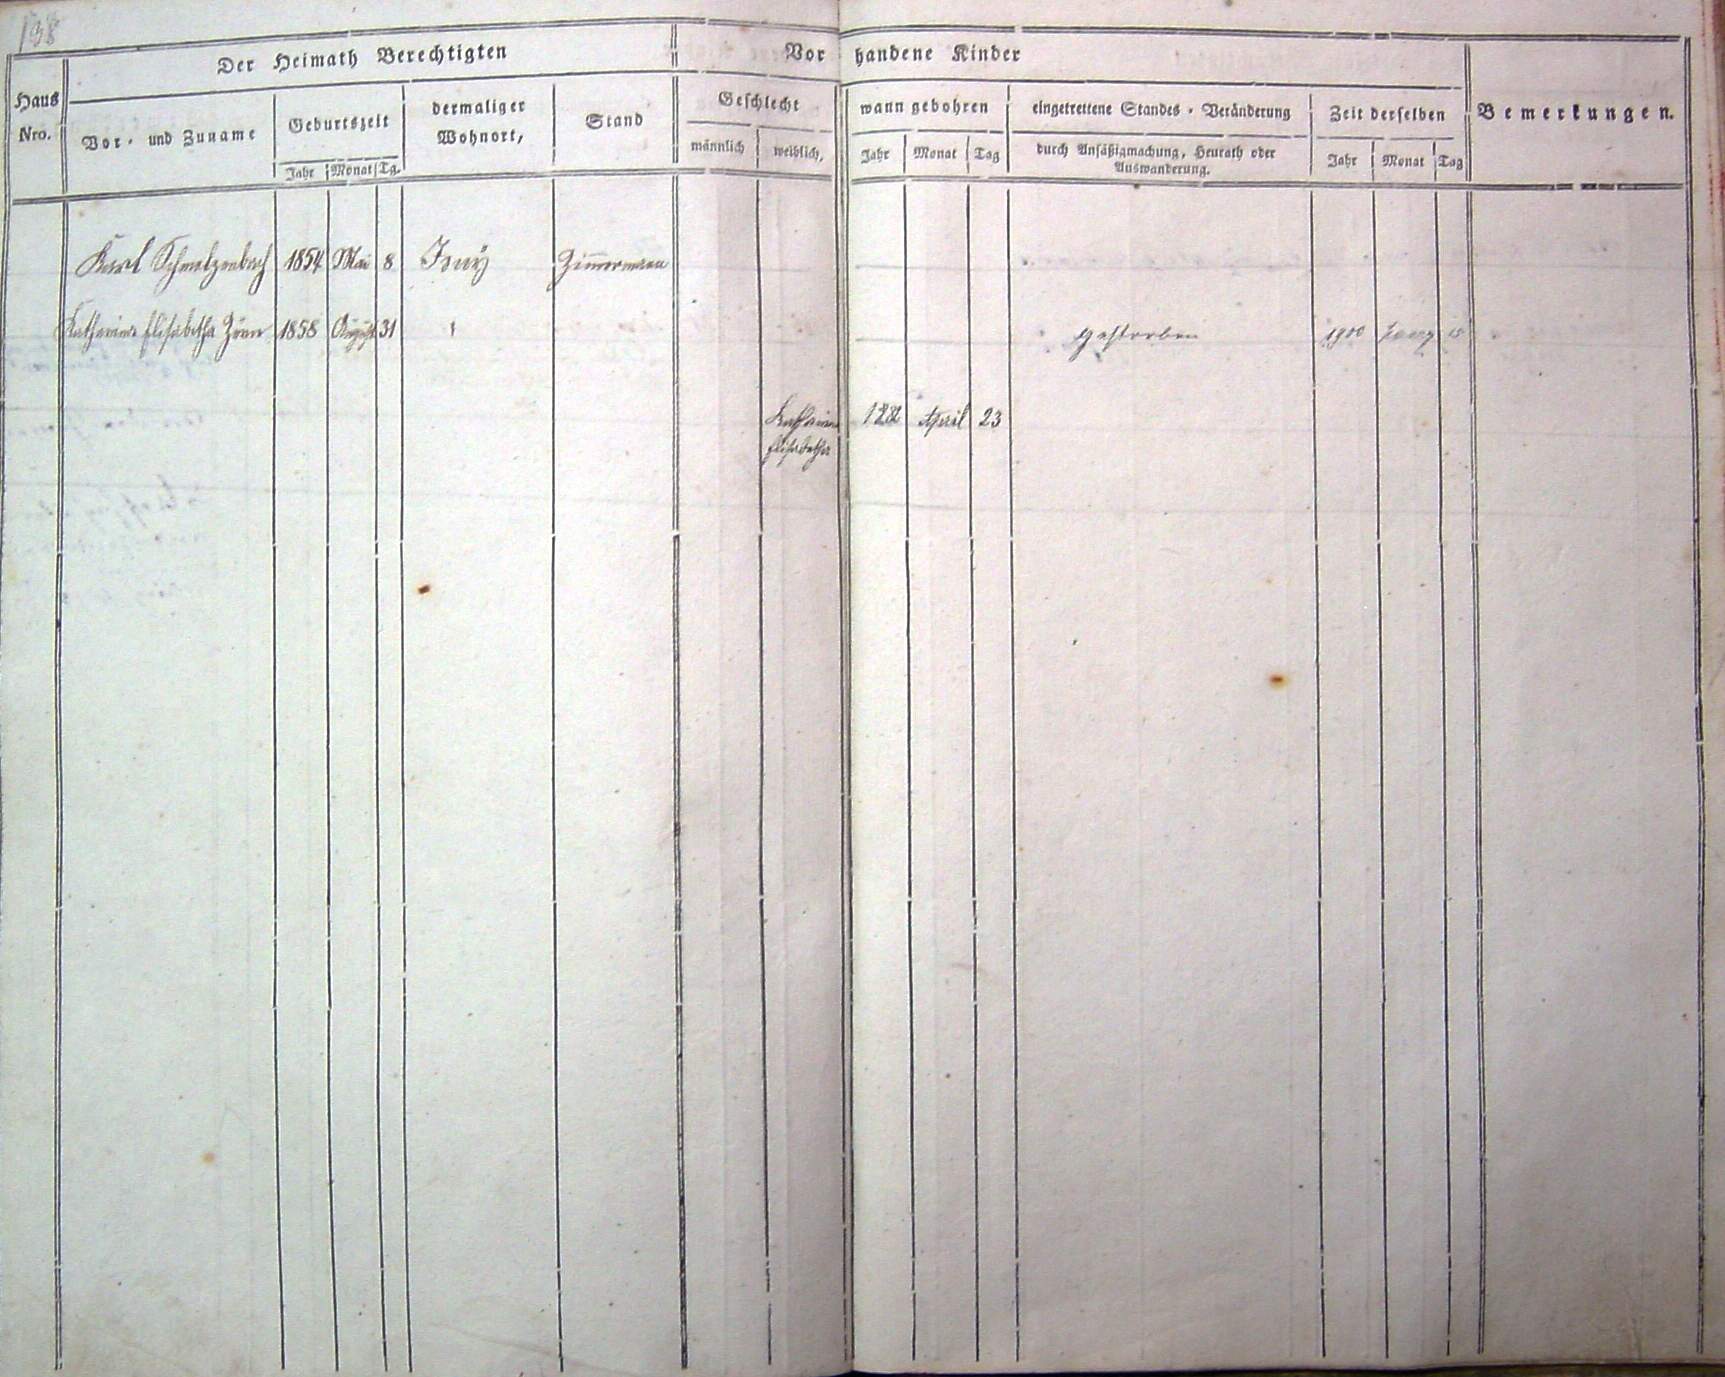 138
Der Heimath Berechtigten
Vorhandene Kinder
Haus Nro.
Vor- und Zuname
Geburtszeit
Jahr Monat Tg.
dermaliger Wohnort,
Stand
Geschlecht
männlich weiblich,
wann gebohren
Jahr Monat Tag
eingetrettene Standes-Veränderung
durch Ansäßigmachung, Heurath oder
Auswanderung.
Zeit derselben
Jahr Monat Tag
Bemerkungen.
Karl Schmelzenbach 1854 Mai 8 Zimmermann
Katharina Elisabetha 1858 August 31 gestorben 1900 15
Katharina 1882 April 23
Elisabetha